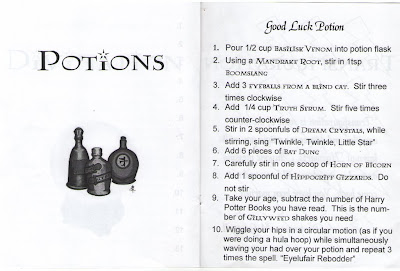 POTIONS
Good Luck Potion
1. Pour 1/2 cup BASILISK VENOM into potion flask
2. Using a MANDRAKE ROOT, stir in 1tsp
BOOMSLANG
3. Add 3 EYEBALLS FROM A BLIND CAT. Stir three
times clockwise
4. Add 1/4 cup TRUTH SERUM. Stir five times
counter-clockwise
5. Stir in 2 spoonfuls of DREAM CRYSTALS, while
stirring, sing "Twinkle, Twinkle, Little Star"
6. Add 6 pieces of BAT DUNG
7. Carefully stir in one scoop of HORN OF BICORN
8. Add 1 spoonful of HIPPOGRIFF GIZZARDS. Do
not stir
9. Take your age, subtract the number of Harry
Potter Books you have read. This is the num-
ber of GILLYWEED shakes you need
10. Wiggle your hips in a circular motion (as if you
were doing a hula hoop) while simultaneously
waving your had over your potion and repeat 3
times the spell. "Eyelufair Rebodder"